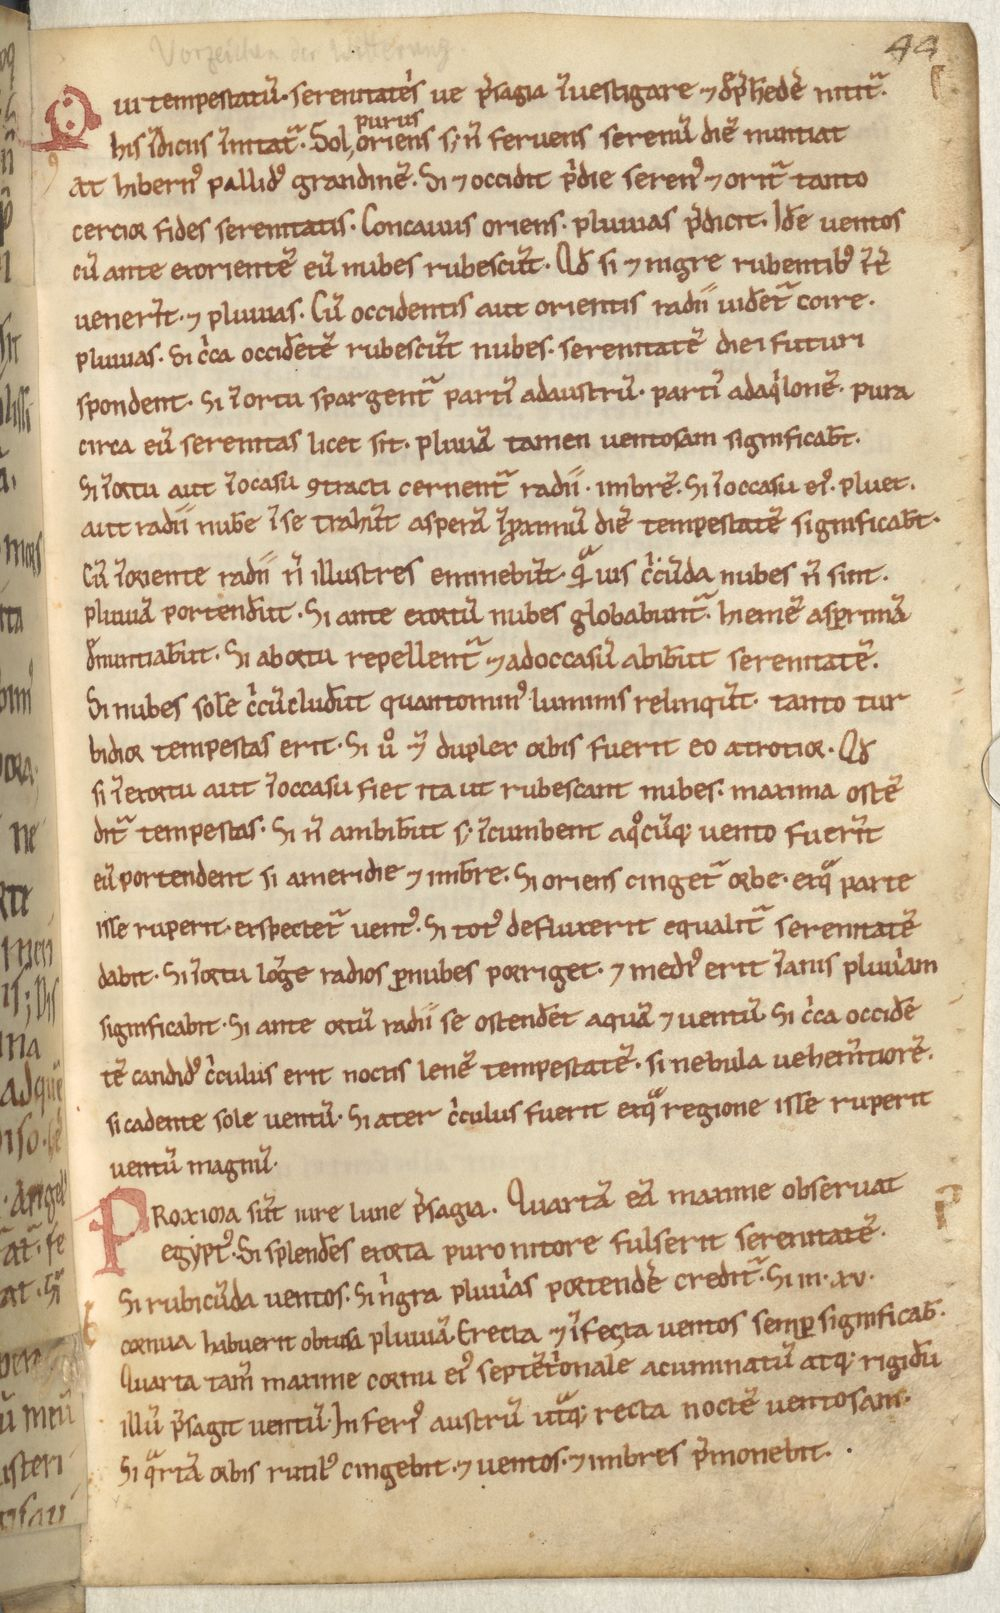 Vorzeichen der Witterung.
44
Qui tempestatū· serenitatē̓s ue p̄sagia īuestigare ⁊ ꝯp̄hedē nitit᷑.
purus
his īdiciis īnitat᷑. Sol, oriens s; n̄ feruens serenū diē nuntiat
At hibern᷒ pallid᷒ grandinē. Si ⁊ occidit p̄die seren᷒ ⁊ orit᷑ tanto
cercior fides serenitatis. Concauus oriens· pluuias p̄dicit. Idē uentos
cū ante exorientē eū nubes rubescūt. Qd̄ si ⁊ nigre rubentib᷒
uenerīt· ⁊ pluuias. Cū occidentis aut orientis radii uidēt᷑ coire.
pluuias. Si c̓ca occidētē rubescūt nubes· serenitatē diei futuri
spondent. Si ī ortu spargent᷑ partī adaustrū· partī adaq̓lonē· pura
circa eū serenitas licet sit· pluuiā tamen uentosam significab̄t.
Si ī ortu aut ī ocasu ꝯtracti cernent᷑ radii· imbrē. Si ī occasu ei᷒ pluet.
aut radii nubē ī se trahūt asperā ī ꝓximū diē tempestatē significab̄t.
Cū ī oriente radii n̄ illustres eminebūt· q̄uis c̓cūda nubes n̄ sint.
pluuiā portendūt. Si ante exortū nubes globabunt᷑· hiemē asꝑrimā
denuntiab̄ut. Si ab ortu repellent᷑ ⁊ adoccasū abib̄ut serenitatē.
Si nubes solē c̓cūcludūt quantomin᷒ luminis relinq̄ūt· tanto tur
bidior tempestas erit. Si ů ⁊ duplex orbis fuerit eo atrotior. Qd̄
si ī exortu aut ī occasu fiet ita ut rubescant nubes· maxima ostē
dit᷑ tempestas. Si n̄ ambib̄ut s; īcumbent aq̊cūq; uento fuerīt
eū portendent si ameridie ⁊ imbre. Si oriens cinget᷑ orbe· exq̄ parte
isse ruperit· exspectet᷑ uent᷒. Si tot᷒ defluxerit equalit᷑ serenitatē
dabit. Si ī ortu lōge radios ꝑnubes porriget· ⁊ medi᷒ erit īanis pluuiam
significabit. Si ante ortū radii se ostendēt aquā ⁊ uentū. Si c̓ca occidē
tē candid᷒ c̓culus erit noctis lenē tempestatē· si nebula uehemētiorē.
si cadente sole uentū. Si ater c̓culus fuerit exq̄ regione isse ruperit
uentū magnū.
Proxima sūt iure lune p̄sagia. Quartā eā maxime obseruat
egypt᷒. Si splendēs exorta puro nitore fulserit serenitatē.
Si rubicūda uentos. Si nigra pluuias portendē credit᷑. Si in· xv·
cornua habuerit obtusa pluuiā. Erecta ⁊ īfecta uentos semꝑ significāt.
Quarta tam̄ maxime cornu ei᷒ septētrionale acuminatū atq; rigidū
illū p̄sagit uentū. Inferi᷒ austrū ut̄q; recta noctē uentosam.
Si q̄rtā orbis rutil᷒ cingebit· ⁊ uentos· ⁊ imbres p̄monebit.